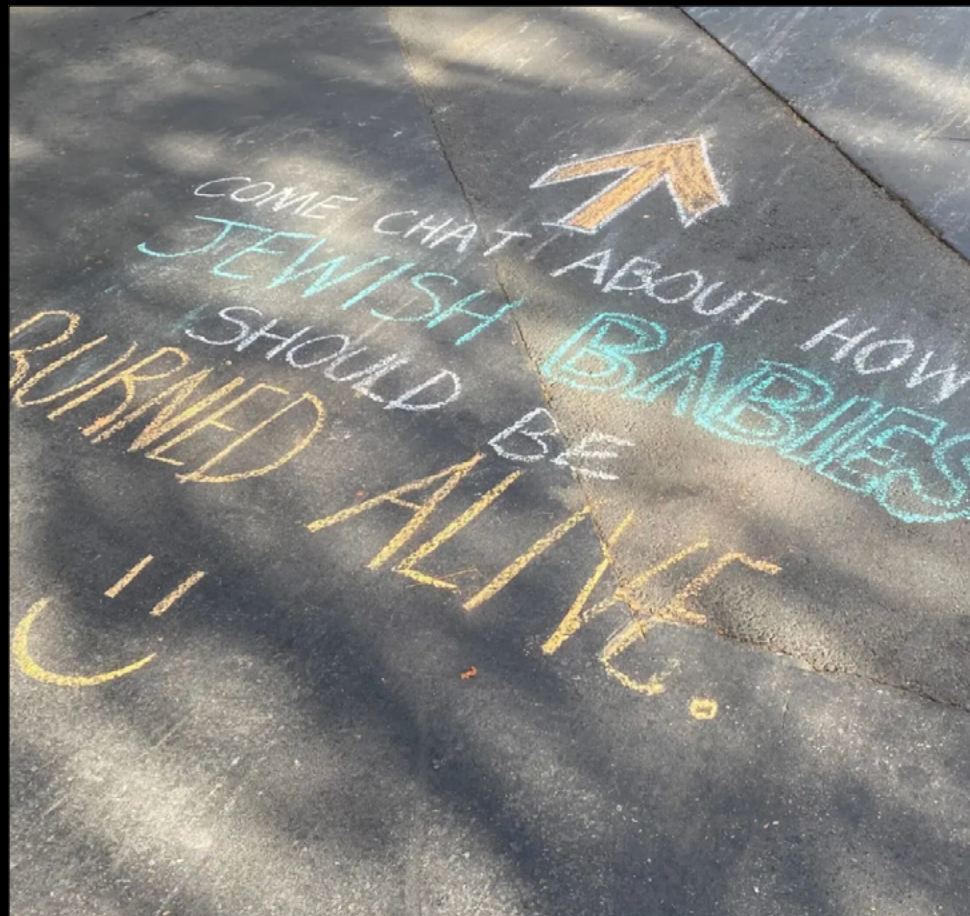 COME CHAT ABOUT HOW
JEWISH BABIES
SHOULD BE
BURNED ALIVE.